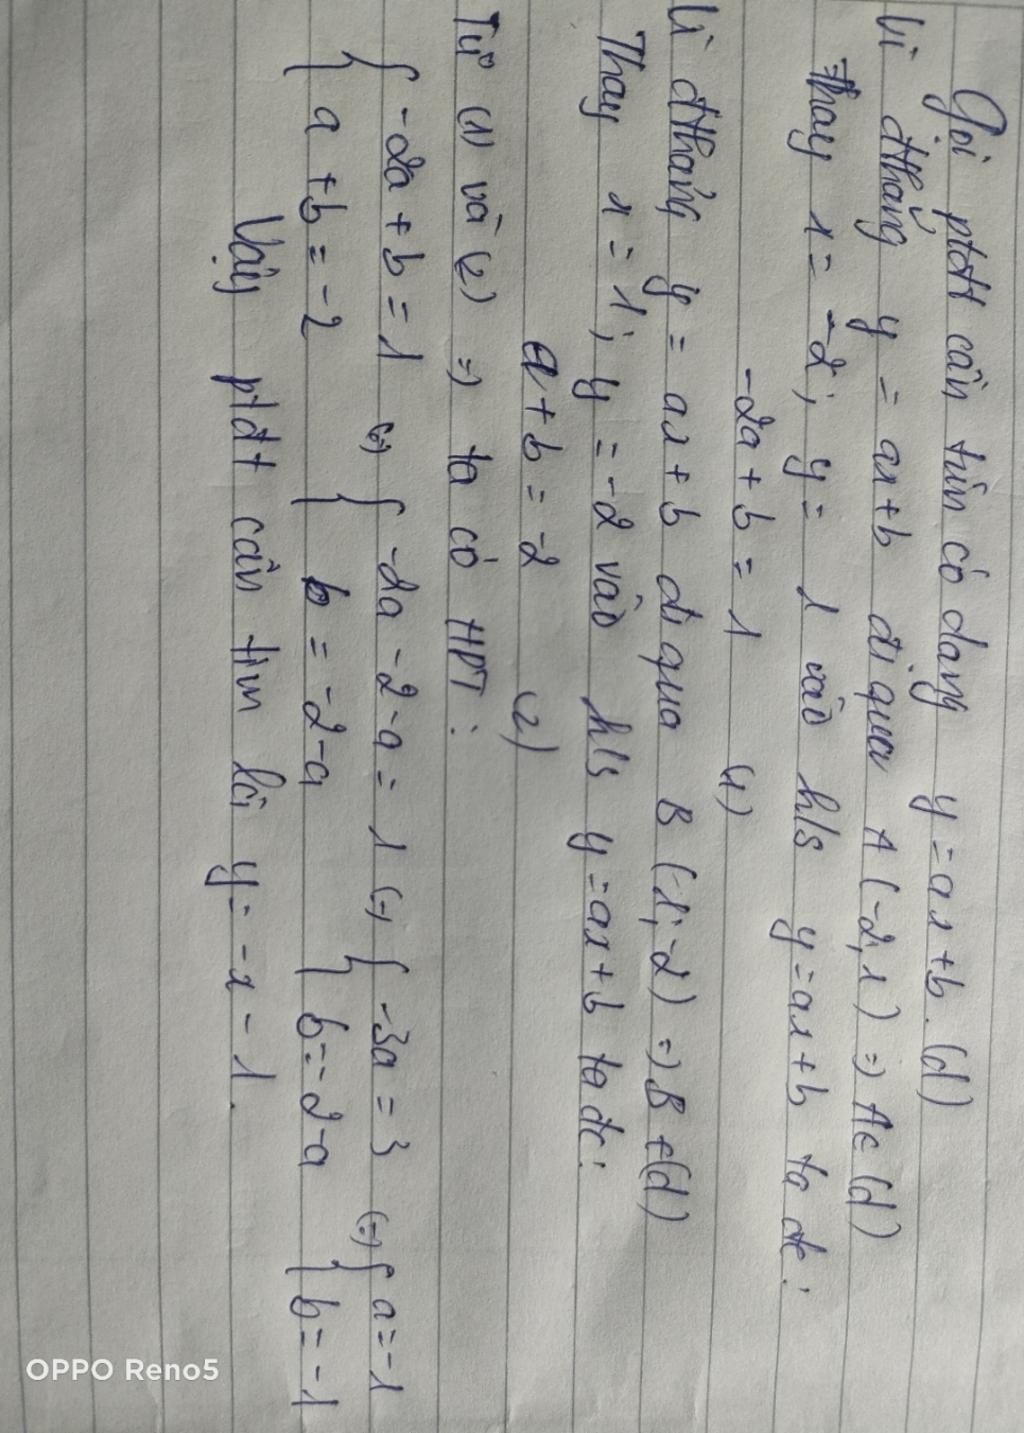 Gọi ptđt cần tìm có dạng y = ax + b. (d)
Vì đthẳng y = ax + b đi qua A (-2; 1) => A ∈ (d)
Thay x = -2; y = 1 vào h/s y = ax + b ta đc:
-2a + b = 1 (1)
Vì đthẳng y = ax + b đi qua B (1; -2) => B ∈ (d)
Thay x = 1; y = -2 vào h/s y = ax + b ta đc:
a + b = -2 (2)
Từ (1) và (2) => ta có HPT:
{ -2a + b = 1 (=) { -2a - 2 - a = 1 (=) { -3a = 3 (=) { a = -1
a + b = -2 b = -2 - a b = -2 - a b = -1
Vậy ptđt cần tìm là y = -x - 1.
OPPO Reno5